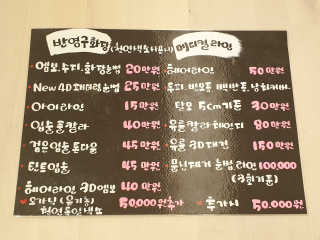 반영구화장 (천연색소니들)
엠보, 콤보, 화장눈썹 20만원
New 4D 입체결눈썹 25만원
아이라인 15만원
입술풀칼라 40만원
검은입술톤다운 45만원
틴트입술 45만원
헤어라인 3D엠보 40만원
오가닉 (유기농)
천연동인색소 50,000원추가
메디컬라인
헤어라인 50만원
두피, 탈모증, 백반증, 남자커버
탈모 5cm기준 30만원
유륜 칼라체인지 80만원
유륜 3D재건 150만원
문신제거 눈썹,라인 100,000
(3회기준)
추가시 50,000원